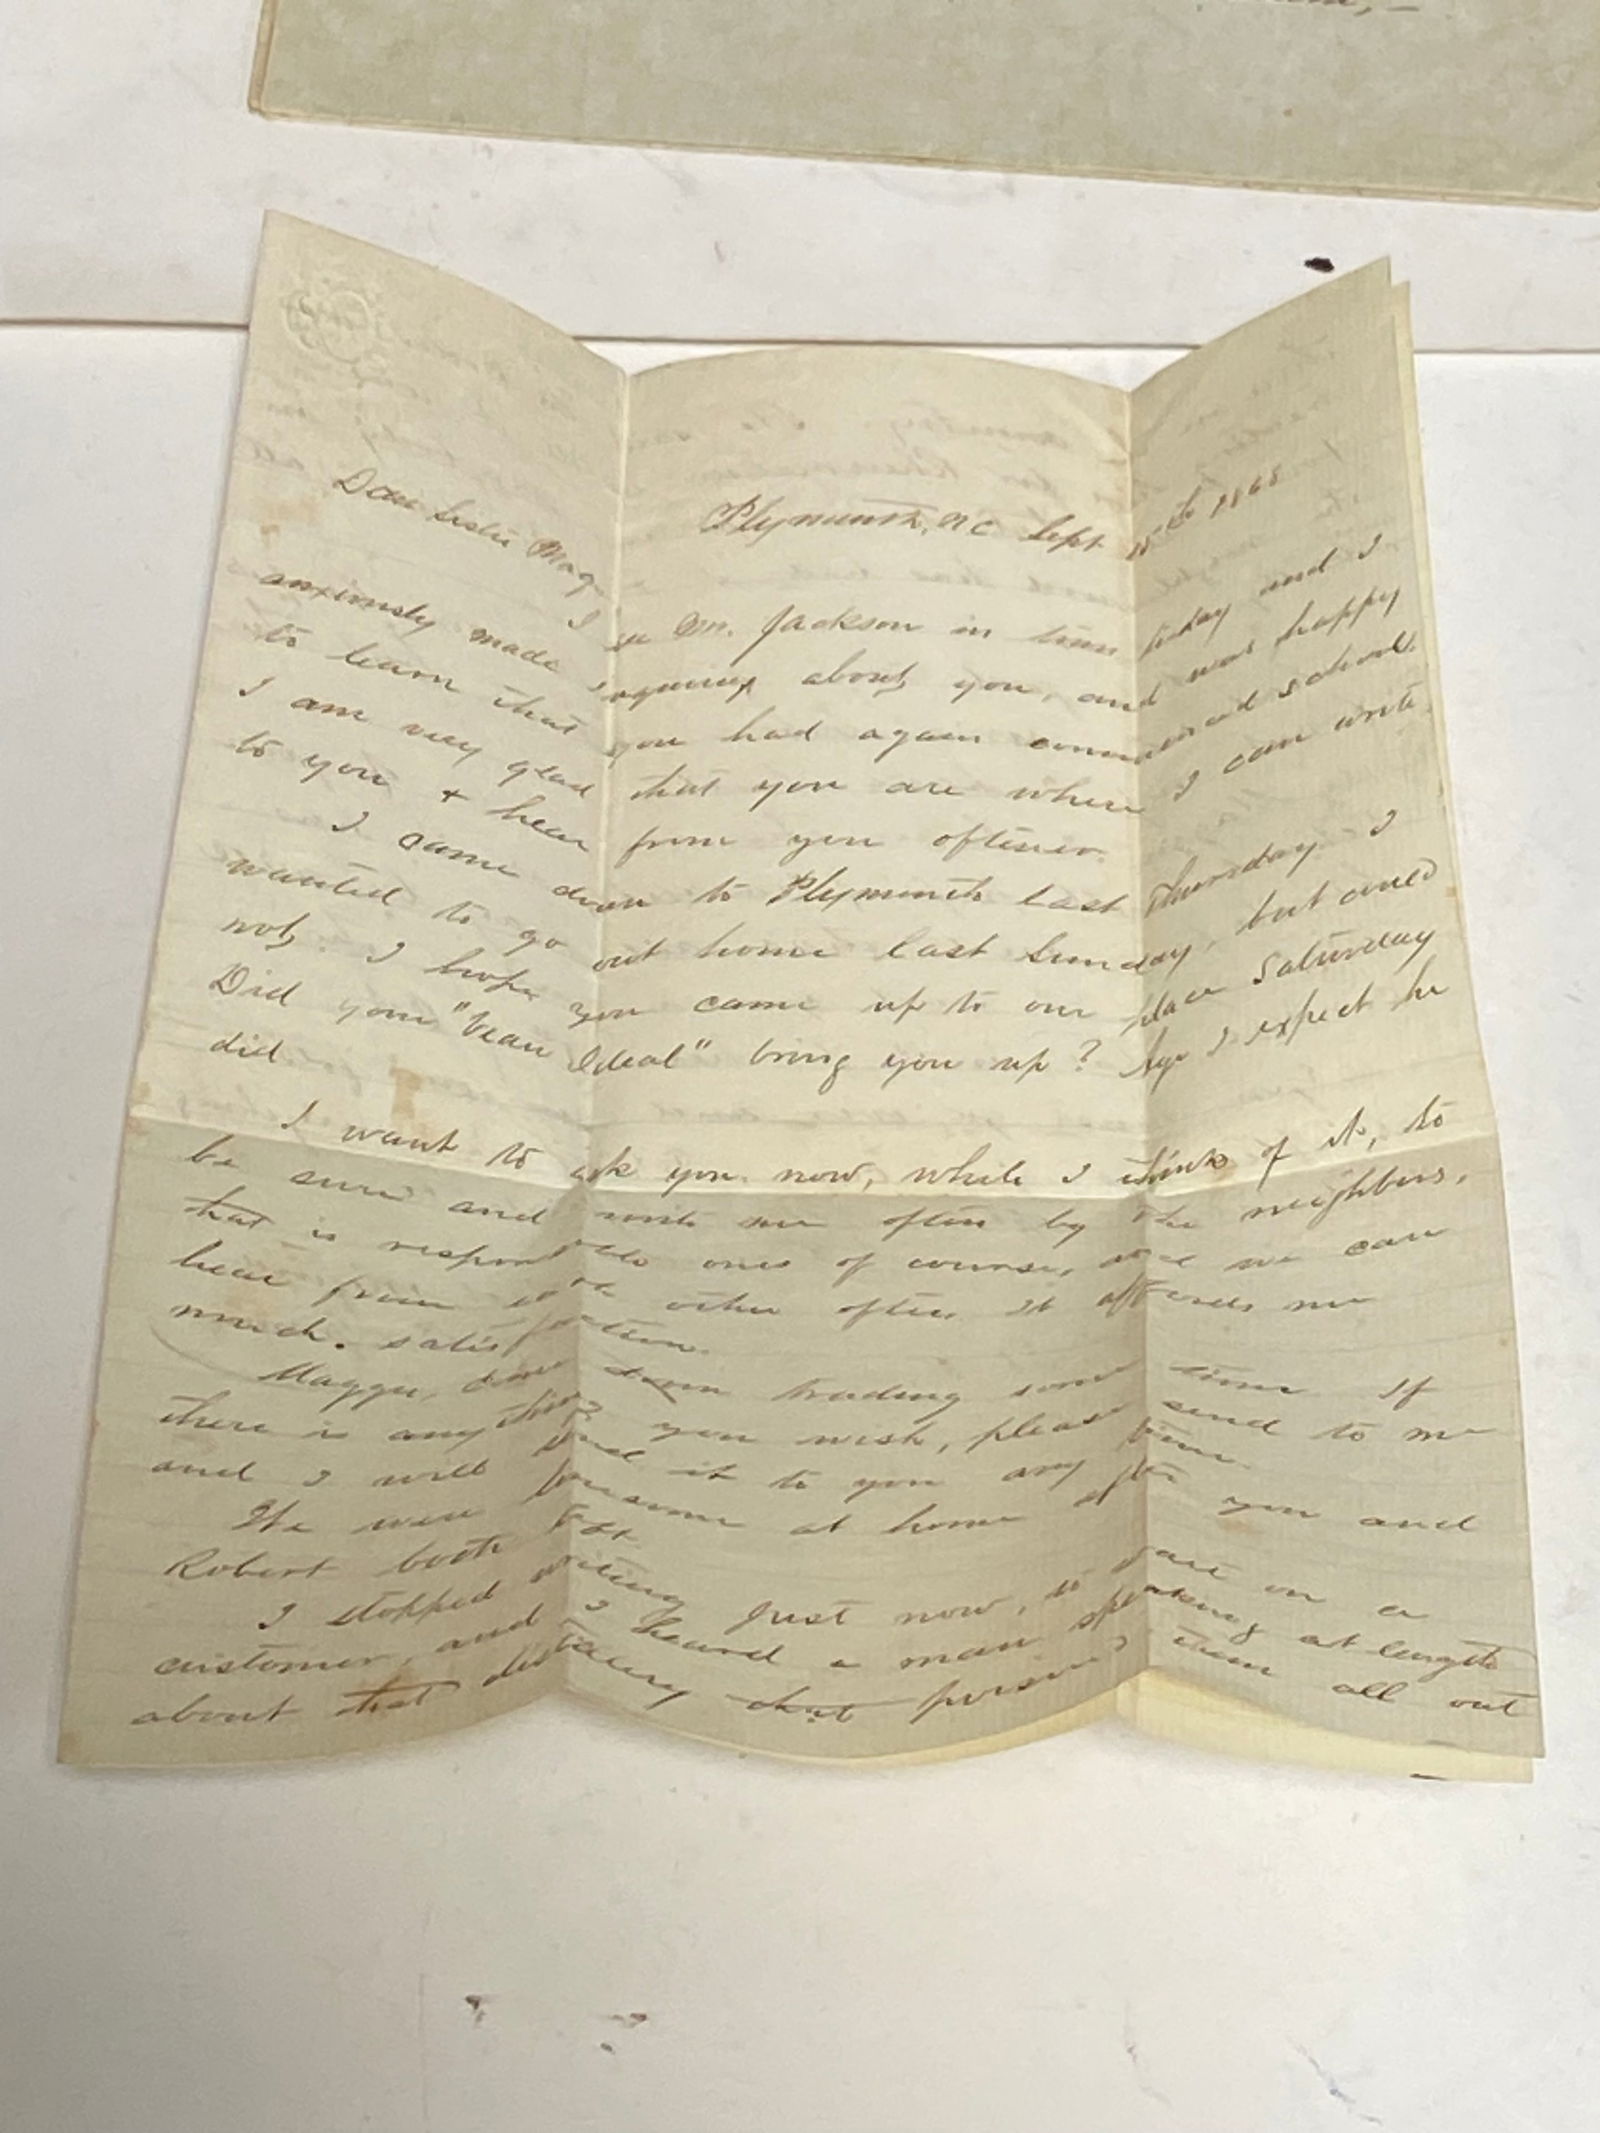 Plymouth, NC Sept 15th 1868
Dear Sister Mag,
I see Mr. Jackson in town today and I
anxiously made inquiries about you, and was happy
to learn that you had again commenced school.
I am very glad that you are where I can write
to you + hear from you oftener.
I came down to Plymouth last Thursday. I
wanted to go out home last Sunday, but could
not. I hope you came up to our place Saturday
Did your "beau Ideal" bring you up? Aye I expect he
did.
I want to ask you now, while I think of it, to
be sure and write me often by the neighbors,
that is respectable ones of course, and we can
hear from each other often. It affords me
much. satisfaction.
Maggie, come down trading some time If
there is anything you wish, please send to me
and I will send it to you any time.
We were lonesome at home after you and
Robert both left
I stopped writing just now, to wait on a
customer, and I heard a man speaking at length
about that distillery that poisoned them all out